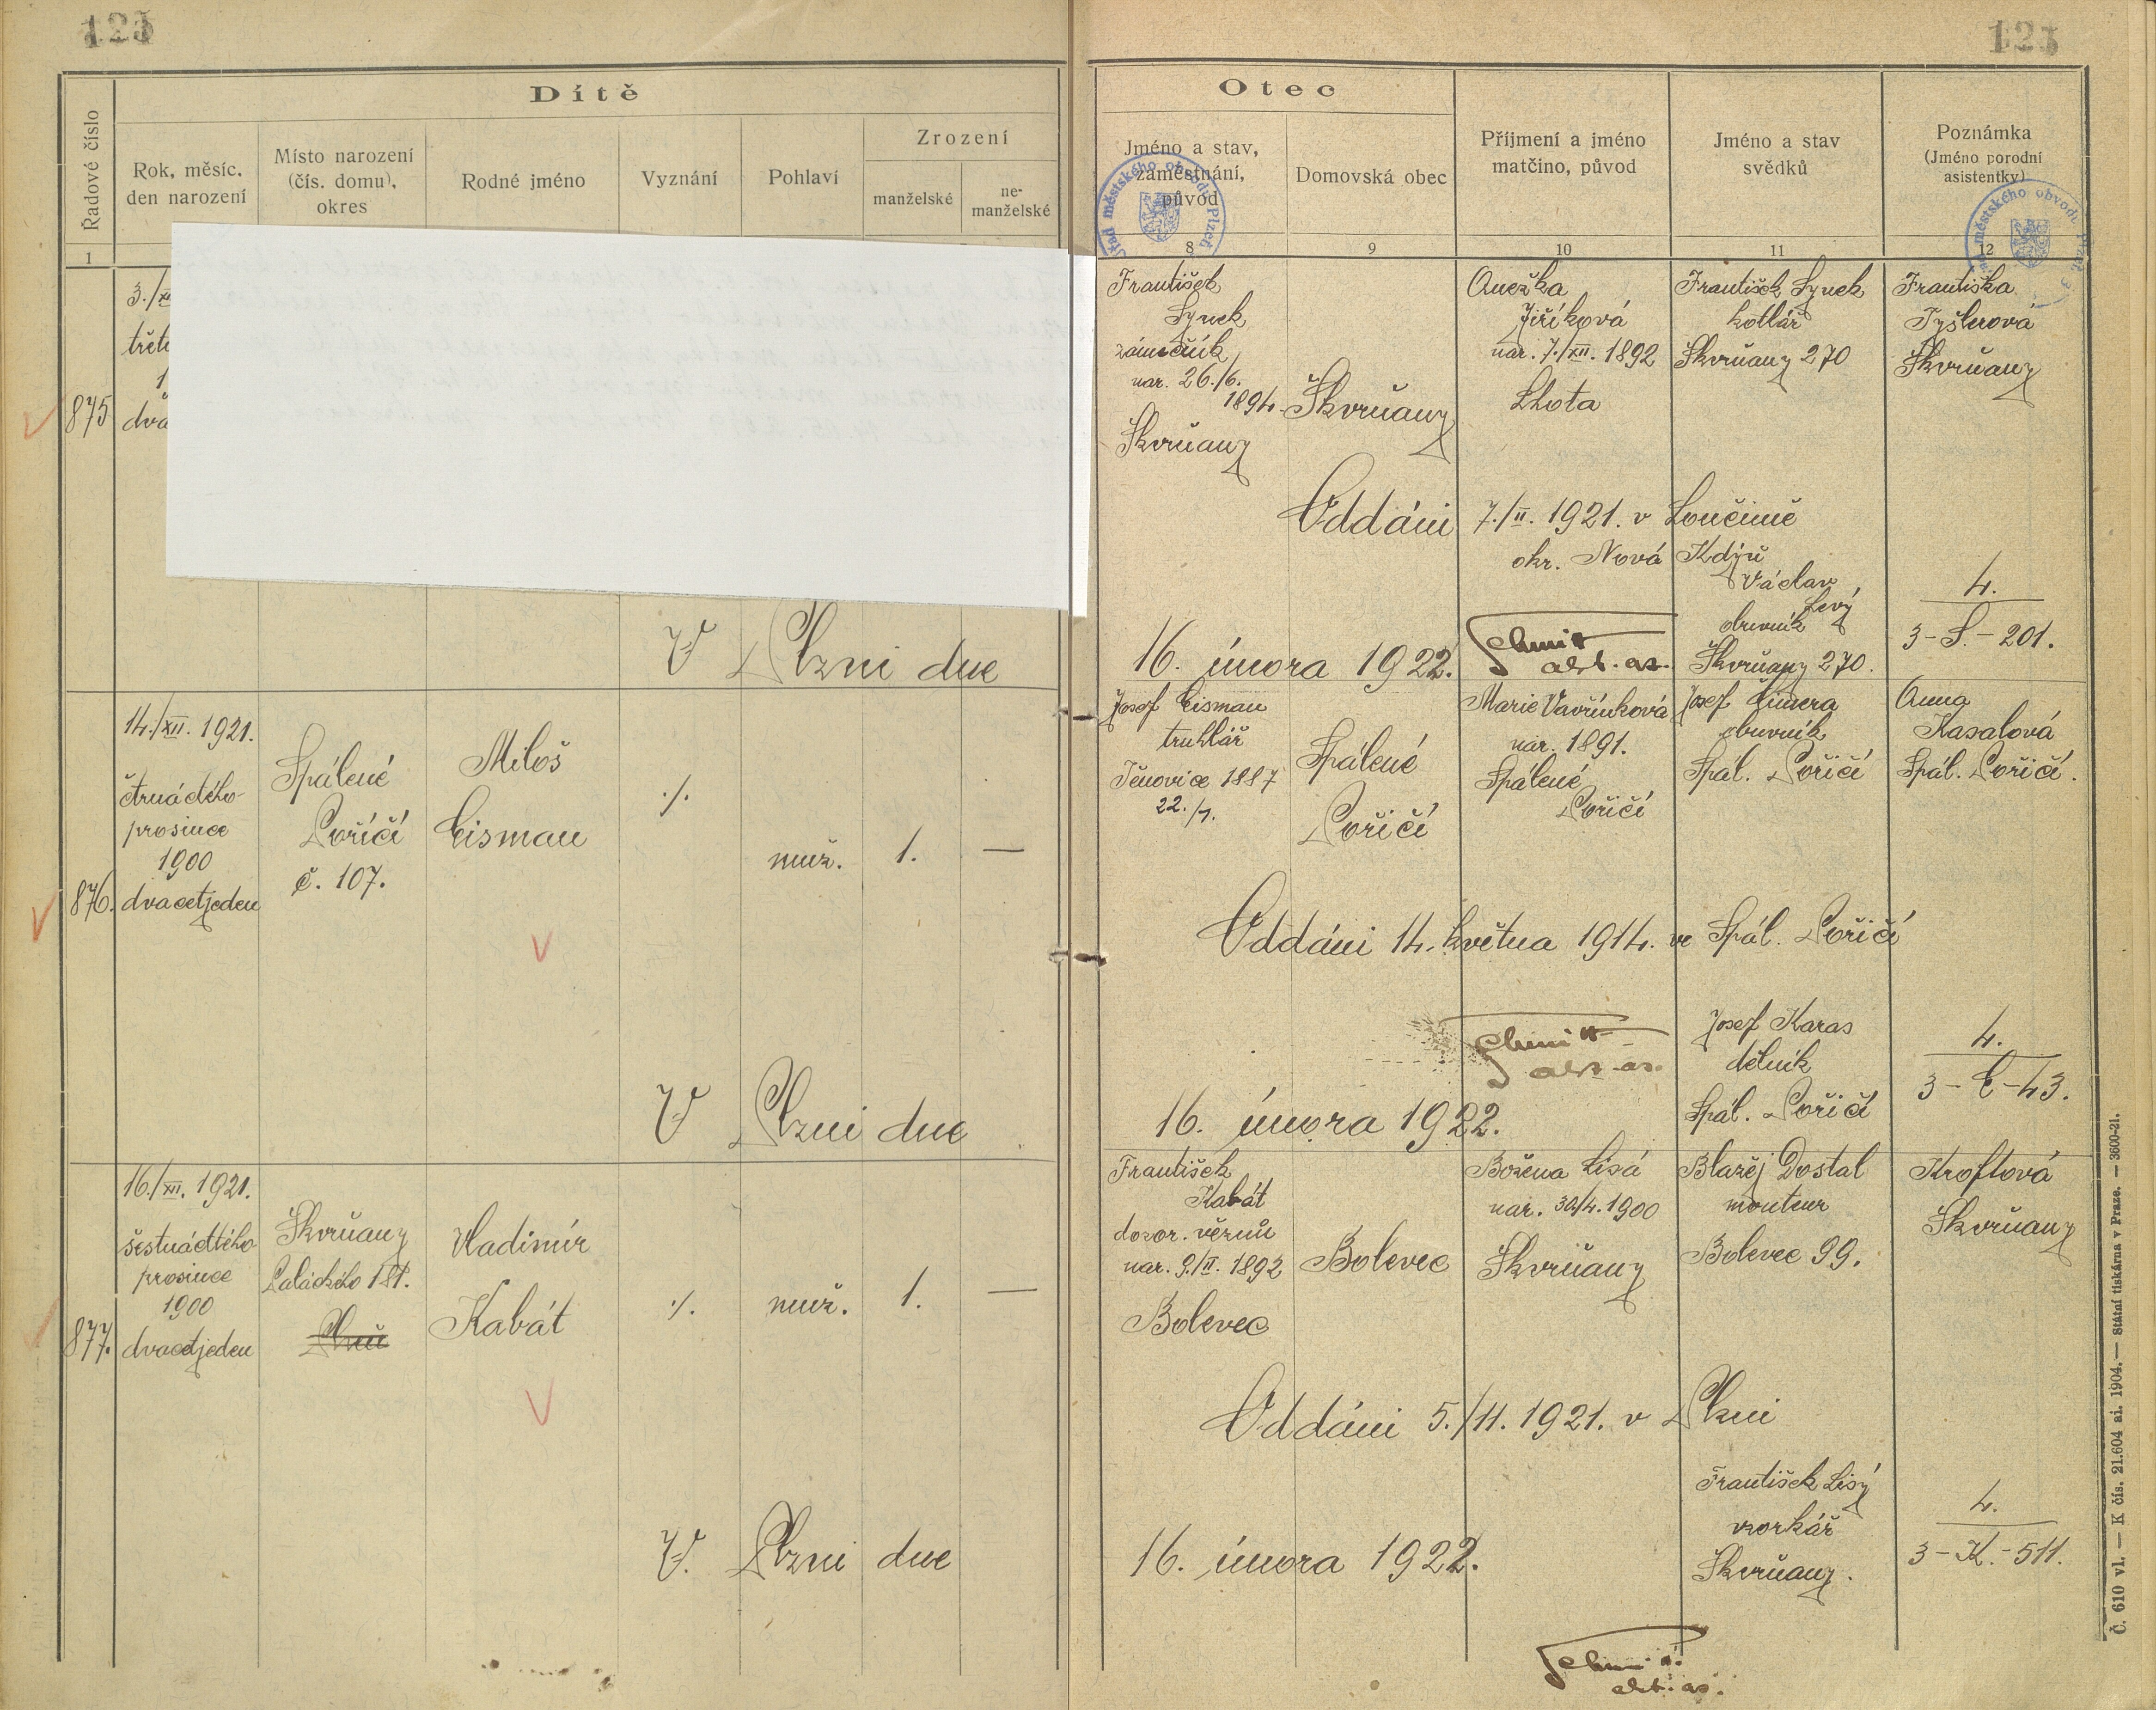 123
123
Dítě
Řadové číslo
Rok, měsíc,
den narození
Místo narození
(čís. domu),
okres
Rodné jméno
Vyznání
Pohlaví
Zrození
manželské
ne-
manželské
1
Otec
Jméno a stav,
zaměstnání,
původ
Domovská obec
Příjmení a jméno
matčino, původ
Jméno a stav
svědků
Poznámka
(Jméno porodní
asistentky)
8
9
10
11
12
875
3./XI
třetí
1
dva
František
Synek
zámečník
nar. 26./6.
1894.
Škvrňany
Škvrňany
Anežka
Jiříková
nar. 7./XII. 1892
Lhota
František Synek
kotlář
Škvrňany 270
Františka
Tyšlerová
Škvrňany
Oddáni 7./II. 1921. v Loučimě
okr. Nová Kdýň
Václav
Levý
obuvník
Škvrňany 270.
4.
3-S.-201.
V Plzni dne 16. února 1922.
Schmitt
akt. as.
876.
14./XII. 1921.
čtrnáctého
prosince
1900
dvacetjeden
Spálené
Poříčí
č. 107.
Miloš
Eisman
./.
muž.
1.
—
Josef Eisman
truhlář
Těnovice 1887
22./7.
Spálené
Poříčí
Marie Vavřínková
nar. 1891.
Spálené
Poříčí
Josef Čimera
obuvník
Spál. Poříčí
Anna
Kasalová
Spál. Poříčí.
Oddáni 14. května 1914. ve Spál. Poříčí
Josef Karas
dělník
Spál. Poříčí
4.
3-E-43.
Schmitt
akt. as.
V Plzni dne 16. února 1922.
877.
16./XII. 1921.
šestnáctého
prosince
1900
dvacetjeden
Škvrňany
Palackého 181.
Plzeň
Vladimír
Kabát
./.
muž.
1.
—
František
Kabát
dozor. vězňů
nar. 9./II. 1892
Bolevec
Bolevec
Božena Lisá
nar. 30/4. 1900
Škvrňany
Blažej Dostal
monteur
Bolevec 99.
Kroftová
Škvrňany
Oddáni 5./11. 1921. v Plzni
František Lisý
vzorkář
Škvrňany.
4.
3-K.-511.
V. Plzni dne 16. února 1922.
Schmitt
akt. as.
Č. 610 vl. — K čís. 21.604 ai. 1904. — Státní tiskárna v Praze. — 3600-21.